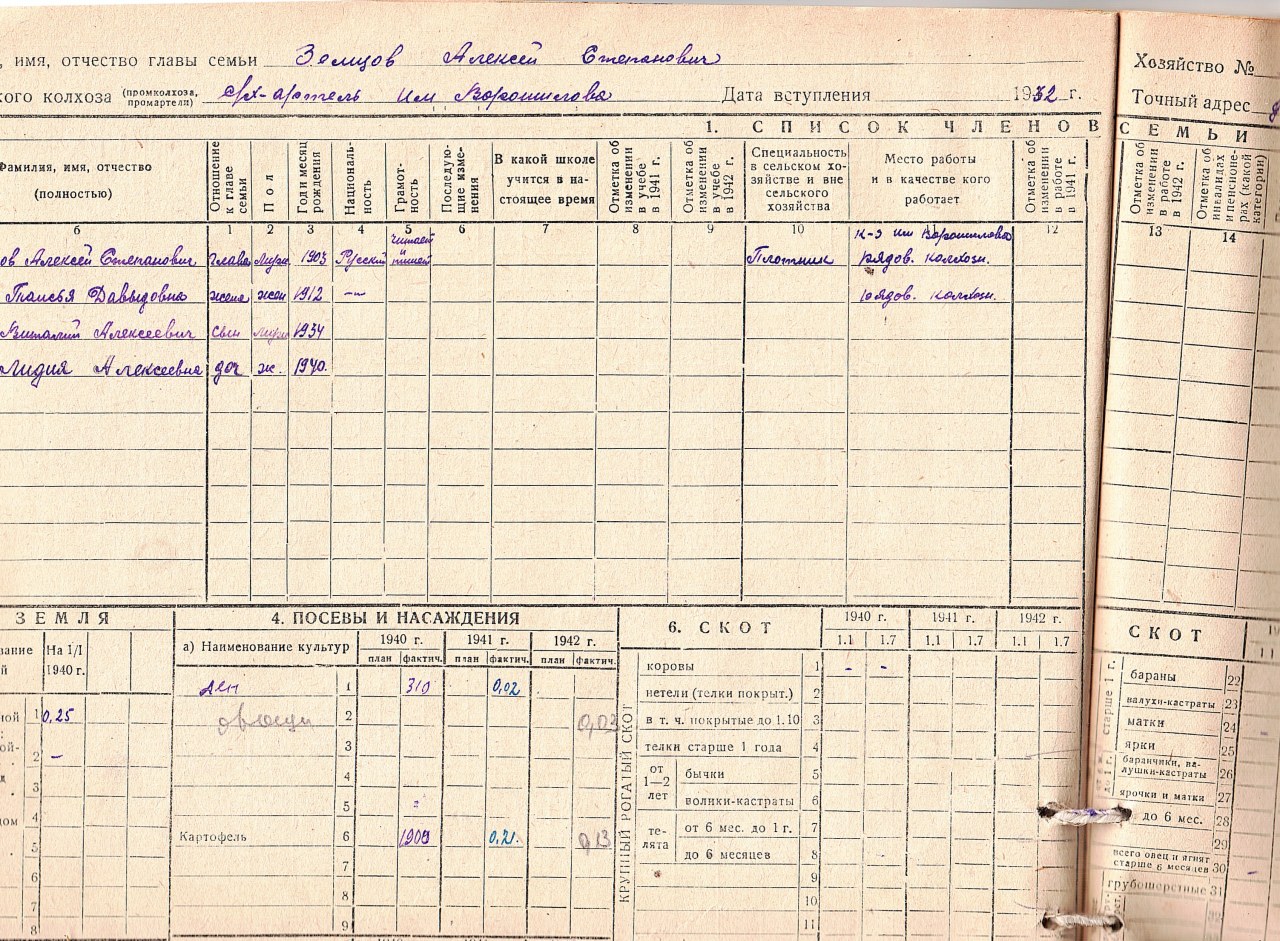 , имя, отчество главы семьи Земцов Алексей Степанович
кого колхоза (промколхоза, промартели) с/х-артель им Ворошилова Дата вступления 1932 г.
Хозяйство №
Точный адрес
1. СПИСОК ЧЛЕНОВ СЕМЬИ
Фамилия, имя, отчество (полностью)
Отношение к главе семьи
Пол
Год и месяц рождения
Националь- ность
Грамот- ность
Последую- щие изме- нения
В какой школе учится в на- стоящее время
Отметка об изменении в учебе в 1941 г.
Отметка об изменении в учебе в 1942 г.
Специальность в сельском хо- зяйстве и вне сельского хозяйства
Место работы и в качестве кого работает
Отметка об изменении в работе в 1941 г.
Отметка об изменении в работе в 1942 г.
Отметка об инвалидах и пенсионе- рах (какой категории)
б 1 2 3 4 5 6 7 8 9 10 12 13 14
ов Алексей Степанович глава 1903 Русский читает и пишет Плотник к-з им Ворошилова рядов. колхозн.
Таисья Давыдовна жена жен 1912 -- рядов. колхозн.
Виталий Алексеевич сын 1934
Лидия Алексеевна доч ж. 1940.
ЗЕМЛЯ
На 1/I 1940 г.
1 0,25
2 -
3
4
5
6
7
8
4. ПОСЕВЫ И НАСАЖДЕНИЯ
а) Наименование культур 1940 г. 1941 г. 1942 г.
план фактич. план фактич. план фактич.
лен 1 310 0,02
овощи 2 0,03
3
4
5
Картофель 6 1900 0,21 0,13
7
8
9
6. СКОТ 1940 г. 1941 г. 1942 г.
1.1 1.7 1.1 1.7 1.1 1.7
КРУПНЫЙ РОГАТЫЙ СКОТ
коровы 1 - -
нетели (телки покрыт.) 2
в т. ч. покрытые до 1.10 3
телки старше 1 года 4
от 1—2 лет бычки 5
волики-кастраты 6
те- лята от 6 мес. до 1 г. 7
до 6 месяцев 8
9
10
11
СКОТ
старше 1 г.
бараны 22
валухи-кастраты 23
матки 24
ярки 25
баранчики, ва- лушки-кастраты 26
ярочки и матки 27
до 6 мес. 28
29
всего овец и ягнят старше 6 месяцев 30
грубошерстные 31
32